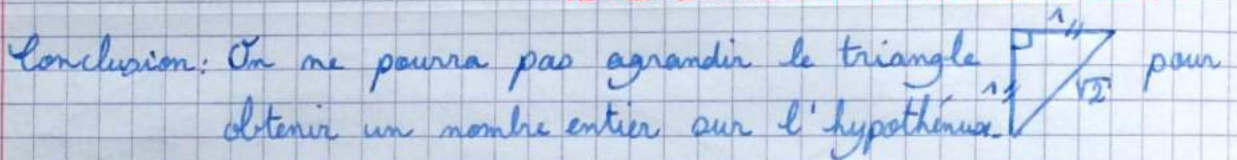 Conclusion: On ne pourra pas agrandir le triangle 1 1 √2 pour
obtenir un nombre entier sur l'hypothénuse.